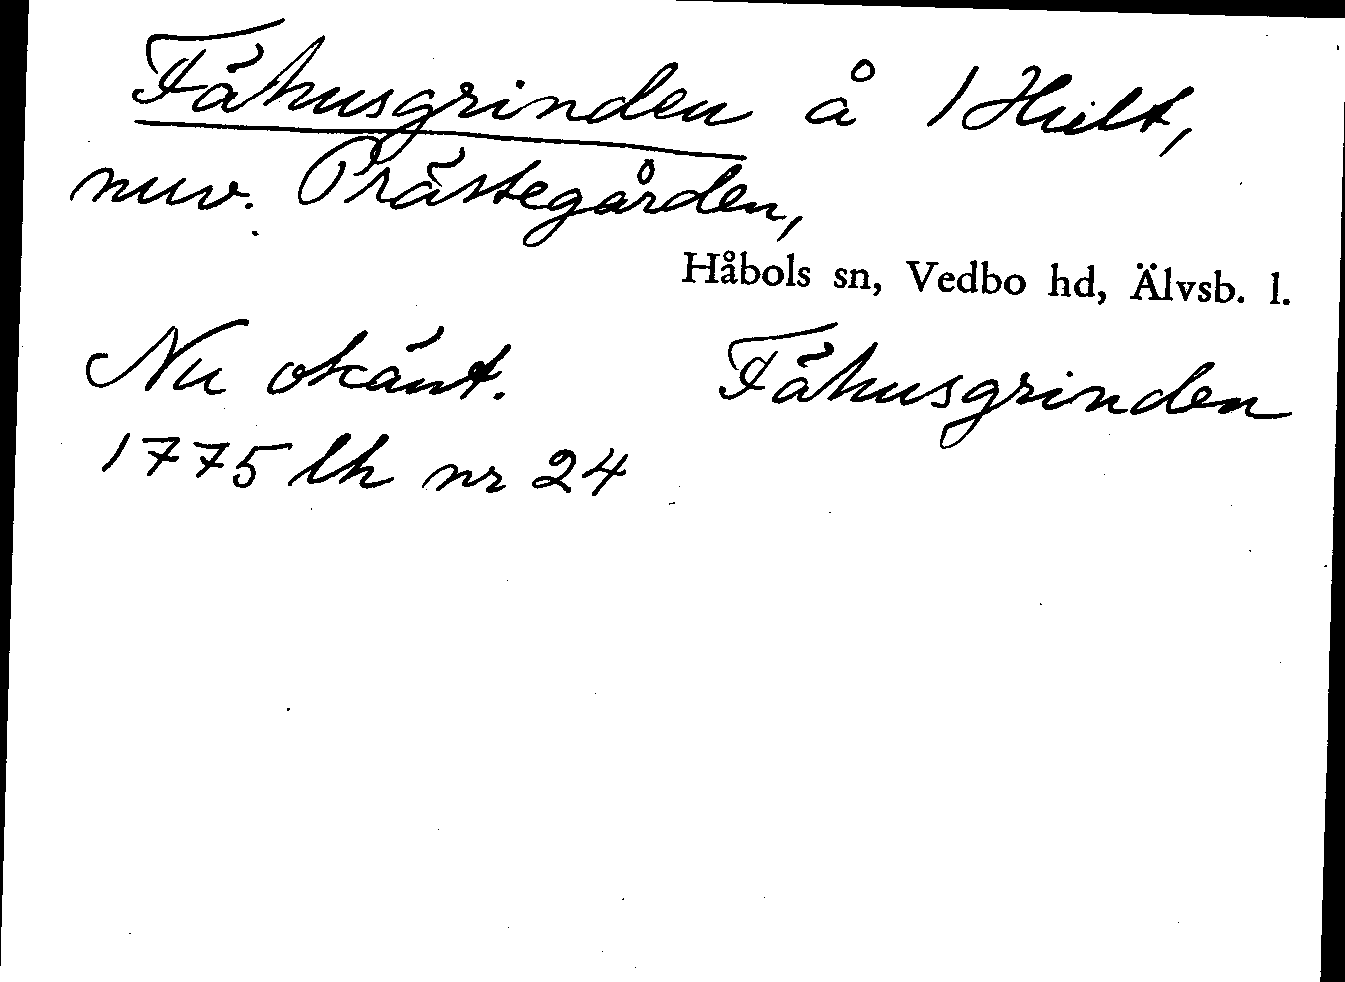 Fähusgrinden å 1 Hult,
nuv. Prästegården,
Håbols sn, Vedbo hd, Älvsb. l.
Nu okänt. Fähusgrinden
1775 lh nr 24